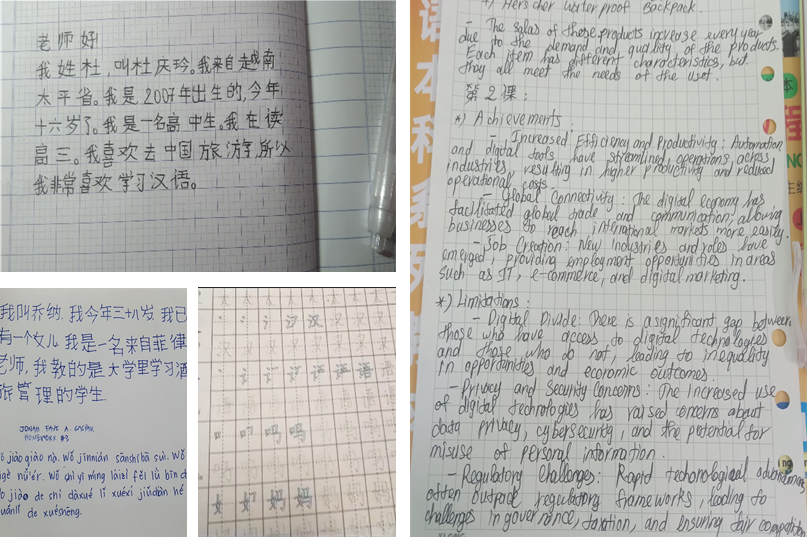 老师好!
我姓杜,叫杜庆玲。我来自越南
太平省。我是2007年出生的,今年
十六岁了。我是一名高中生。我在读
高三。我喜欢去中国旅游,所以
我非常喜欢学习汉语。
我叫乔纳. 我今年三十八岁 我已
有一个女儿 我是一名来自菲律
老师, 我教的是大学里学习酒
旅管理的学生.
HOMEWORK #3
jiào qiáo nà. Wǒ jīnnián sānshíbā suì. Wǒ
nǚ'ér. Wǒ shì yī míng láizì fēi lǜ bīn
jiāo de shì dàxué lǐ xuéxí jiǔdiàn hé
de xuéshēng.
汉
语
吗
妈
*) Herscher waterproof Backpack.
- The salas of these products increase every year
due to the demand and quality of the products.
Each item has different characteristics, but
they all meet the needs of the user.
第2课:
*) Achievements:
- Increased Efficiency and Productivity: Automation
and digital tools have streamlined operations across
industries resulting in higher productivity and reduced
operational costs.
- Global Connectivity: The digital economy has
facilitated global trade and communication, allowing
businesses to reach international markets more easily.
- Job Creation: New industries and roles have
emerged, providing employment opportunities in areas
such as IT, e-commerce, and digital marketing.
*) Limitations:
- Digital Divide: There is a significant gap between
those who have access to digital technologies
and those who do not, leading to inequality
in opportunities and economic outcomes.
- Privacy and Security Concerns: The increased use
of digital technologies has raised concerns about
data privacy, cybersecurity, and the potential for
misuse of personal information.
- Regulatory Challenges: Rapid technological advancements
often outpace regulatory frameworks, leading to
challenges in governance, taxation, and ensuring fair competition
语本科系列